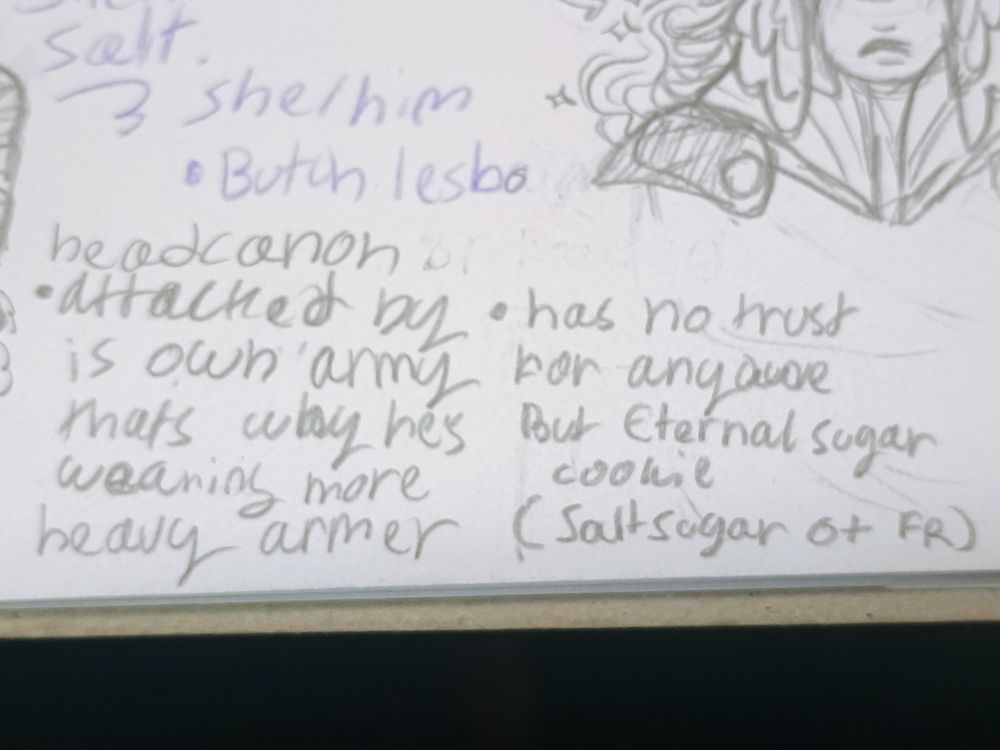 Salt.
she/him
• Butch lesbo
headcanon
• attacked by
is own army
thats why hes
wearing more
heavy armer
• has no trust
for anyone
But Eternal sugar
cookie
(Saltsugar ot FR)